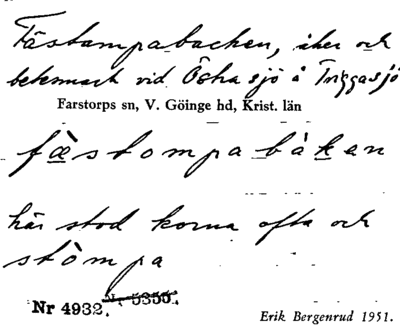 Fästampabacken, åker och
betesmark vid Östra sjö å Triggasjö
Farstorps sn, V. Göinge hd, Krist. län
fæstompabàkan
här stod korna ofta och
stòmpa
Nr 4932. Nr 5350.
Erik Bergenrud 1951.